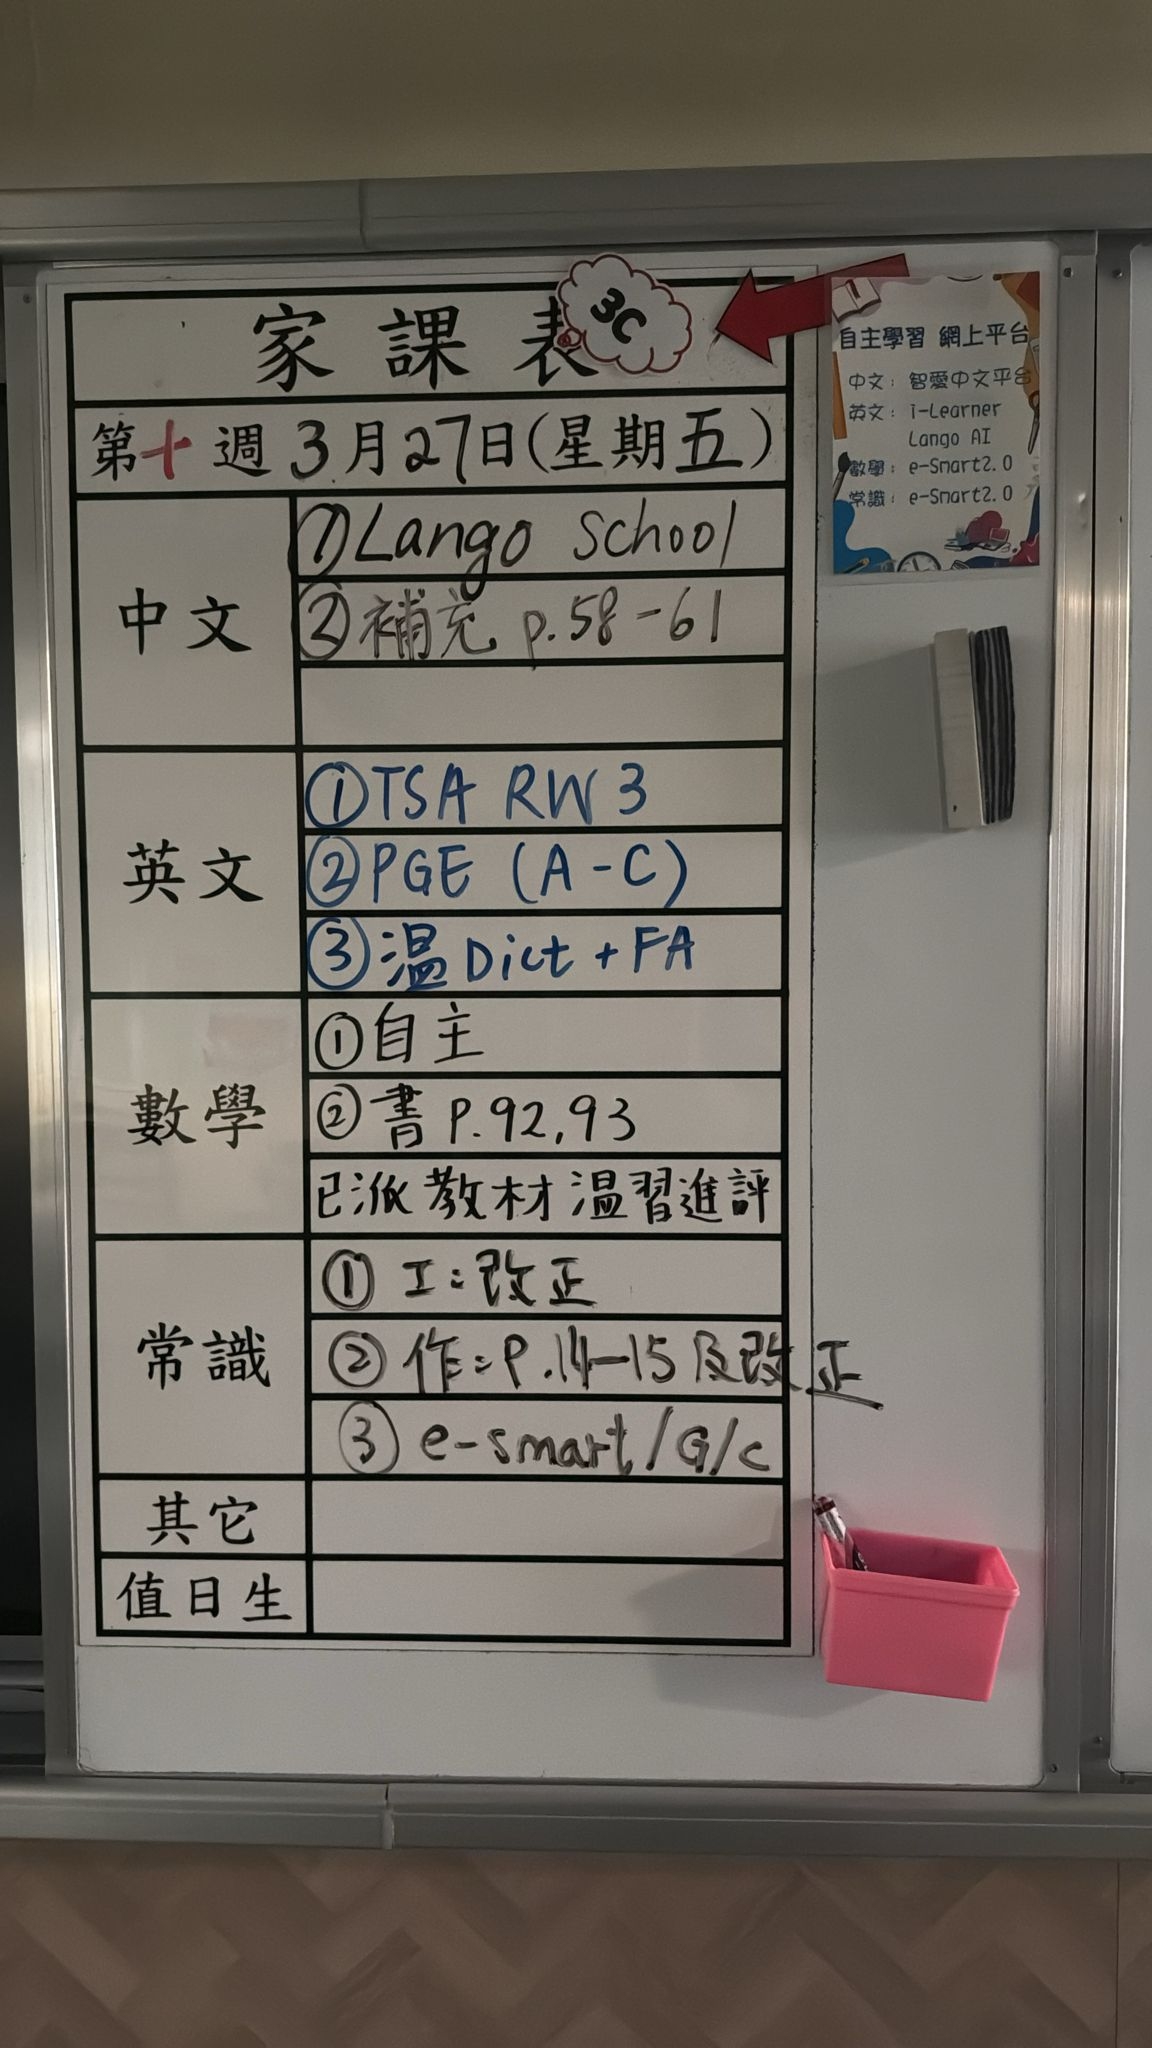 家課表
3C
第十週3月27日(星期五)
中文
①Lango School
②補充 p.58-61
英文
①TSA RW 3
②PGE (A-C)
③温Dict + FA
數學
①自主
②書 P.92,93
已派教材温習進評
常識
① 工:改正
② 作:P.14-15及改正
③ e-smart/G/c
其它
值日生
自主學習 網上平台
中文: 智愛中文平台
英文: i-Learner
Lango AI
數學: e-Smart2.0
常識: e-Smart2.0